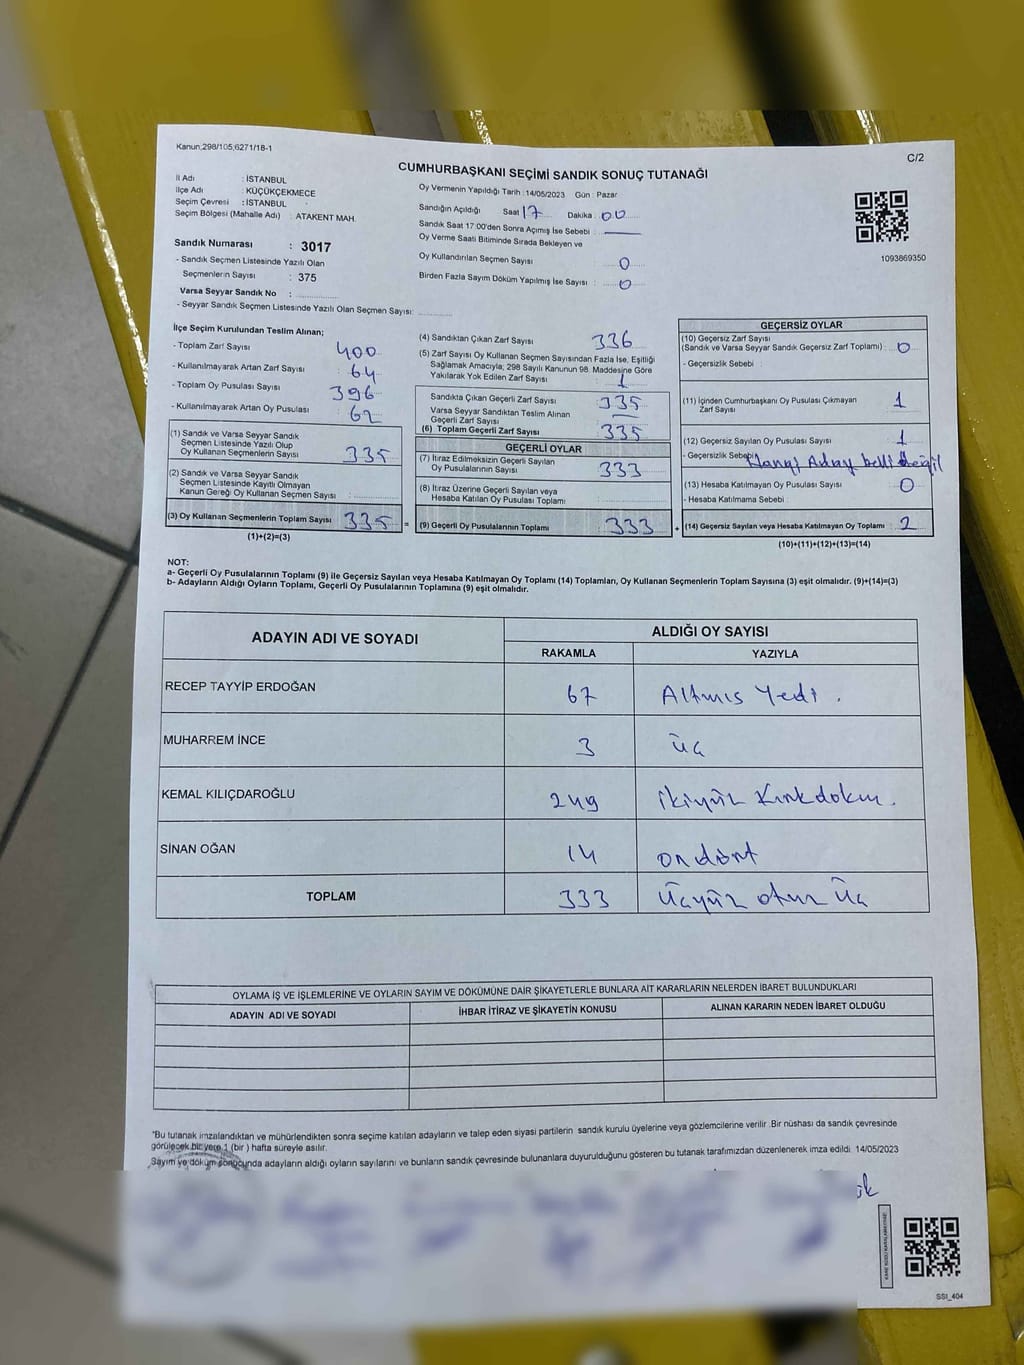 Kanun;298/105;6271/18-1
C/2
CUMHURBAŞKANI SEÇİMİ SANDIK SONUÇ TUTANAĞI
İl Adı : İSTANBUL
İlçe Adı : KÜÇÜKÇEKMECE
Seçim Çevresi : İSTANBUL
Seçim Bölgesi (Mahalle Adı) : ATAKENT MAH.
Sandık Numarası : 3017
- Sandık Seçmen Listesinde Yazılı Olan
Seçmenlerin Sayısı : 375
Varsa Seyyar Sandık No :
- Seyyar Sandık Seçmen Listesinde Yazılı Olan Seçmen Sayısı:
Oy Vermenin Yapıldığı Tarih : 14/05/2023 Gün : Pazar
Sandığın Açıldığı Saat 17 Dakika : 00
Sandık Saat 17:00'den Sonra Açılmış İse Sebebi :
Oy Verme Saati Bitiminde Sırada Bekleyen ve
Oy Kullandırılan Seçmen Sayısı : 0
Birden Fazla Sayım Döküm Yapılmış İse Sayısı : 0
1093869350
İlçe Seçim Kurulundan Teslim Alınan;
- Toplam Zarf Sayısı 400
- Kullanılmayarak Artan Zarf Sayısı 64
- Toplam Oy Pusulası Sayısı 396
- Kullanılmayarak Artan Oy Pusulası 62
(1) Sandık ve Varsa Seyyar Sandık
Seçmen Listesinde Yazılı Olup
Oy Kullanan Seçmenlerin Sayısı : 335
(2) Sandık ve Varsa Seyyar Sandık
Seçmen Listesinde Kayıtlı Olmayan
Kanun Gereği Oy Kullanan Seçmen Sayısı :
(3) Oy Kullanan Seçmenlerin Toplam Sayısı : 335 =
(1)+(2)=(3)
(4) Sandıktan Çıkan Zarf Sayısı : 336
(5) Zarf Sayısı Oy Kullanan Seçmen Sayısından Fazla İse, Eşitliği
Sağlamak Amacıyla; 298 Sayılı Kanunun 98. Maddesine Göre
Yakılarak Yok Edilen Zarf Sayısı : 1
Sandıkta Çıkan Geçerli Zarf Sayısı : 335
Varsa Seyyar Sandıktan Teslim Alınan
Geçerli Zarf Sayısı :
(6) Toplam Geçerli Zarf Sayısı : 335
GEÇERLİ OYLAR
(7) İtiraz Edilmeksizin Geçerli Sayılan
Oy Pusulalarının Sayısı : 333
(8) İtiraz Üzerine Geçerli Sayılan veya
Hesaba Katılan Oy Pusulası Toplamı :
(9) Geçerli Oy Pusulalarının Toplamı : 333 +
GEÇERSİZ OYLAR
(10) Geçersiz Zarf Sayısı
(Sandık ve Varsa Seyyar Sandık Geçersiz Zarf Toplamı) : 0
- Geçersizlik Sebebi :
(11) İçinden Cumhurbaşkanı Oy Pusulası Çıkmayan
Zarf Sayısı : 1
(12) Geçersiz Sayılan Oy Pusulası Sayısı : 1
- Geçersizlik Sebebi : Hangi Aday belli değil
(13) Hesaba Katılmayan Oy Pusulası Sayısı : 0
- Hesaba Katılmama Sebebi :
(14) Geçersiz Sayılan veya Hesaba Katılmayan Oy Toplamı : 2
(10)+(11)+(12)+(13)=(14)
NOT:
a- Geçerli Oy Pusulalarının Toplamı (9) ile Geçersiz Sayılan veya Hesaba Katılmayan Oy Toplamı (14) Toplamları, Oy Kullanan Seçmenlerin Toplam Sayısına (3) eşit olmalıdır. (9)+(14)=(3)
b- Adayların Aldığı Oyların Toplamı, Geçerli Oy Pusulalarının Toplamına (9) eşit olmalıdır.
ADAYIN ADI VE SOYADI
ALDIĞI OY SAYISI
RAKAMLA YAZIYLA
RECEP TAYYİP ERDOĞAN 67 Altmış Yedi .
MUHARREM İNCE 3 üç
KEMAL KILIÇDAROĞLU 249 ikiyüz Kırkdokuz .
SİNAN OĞAN 14 ondört
TOPLAM 333 Üçyüz otuz Üç
OYLAMA İŞ VE İŞLEMLERİNE VE OYLARIN SAYIM VE DÖKÜMÜNE DAİR ŞİKAYETLERLE BUNLARA AİT KARARLARIN NELERDEN İBARET BULUNDUKLARI
ADAYIN ADI VE SOYADI İHBAR İTİRAZ VE ŞİKAYETİN KONUSU ALINAN KARARIN NEDEN İBARET OLDUĞU
"Bu tutanak imzalandıktan ve mühürlendikten sonra seçime katılan adayların ve talep eden siyasi partilerin sandık kurulu üyelerine veya gözlemcilerine verilir. Bir nüshası da sandık çevresinde
görülecek bir yere 1 (bir ) hafta süreyle asılır.
Sayım ve döküm sonucunda adayların aldığı oyların sayılarını ve bunların sandık çevresinde bulunanlara duyurulduğunu gösteren bu tutanak tarafımızdan düzenlenerek imza edildi. 14/05/2023
SSI_404